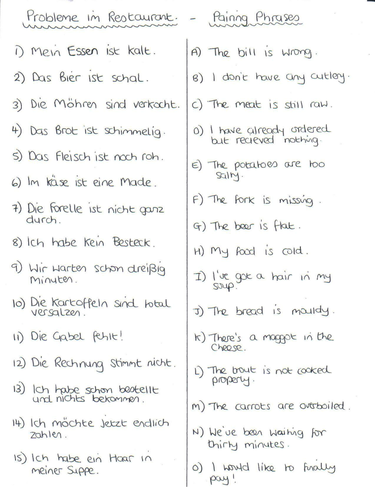 Probleme im Restaurant. - Pairing Phrases
1) Mein Essen ist kalt.
2) Das Bier ist schal.
3) Die Möhren sind verkocht.
4) Das Brot ist schimmelig.
5) Das Fleisch ist noch roh.
6) Im käse ist eine Made.
7) Die Forelle ist nicht ganz
durch.
8) Ich habe kein Besteck.
9) Wir warten schon dreißig
minuten.
10) Die Kartoffeln sind total
versalzen.
11) Die Gabel fehlt!
12) Die Rechnung stimmt nicht.
13) Ich habe schon bestellt
und nichts bekommen.
14) Ich möchte jetzt endlich
zahlen.
15) Ich habe ein Haar in
meiner Suppe.
A) The bill is wrong.
B) I don't have any cutlery.
C) The meat is still raw.
D) I have already ordered
but recieved nothing.
E) The potatoes are too
salty.
F) The fork is missing.
G) The beer is flat.
H) My food is cold.
I) I've got a hair in my
soup.
J) The bread is mouldy.
K) There's a maggot in the
cheese.
L) The trout is not cooked
properly.
M) The carrots are overboiled.
N) We've been waiting for
thirty minutes.
O) I would like to finally
pay!